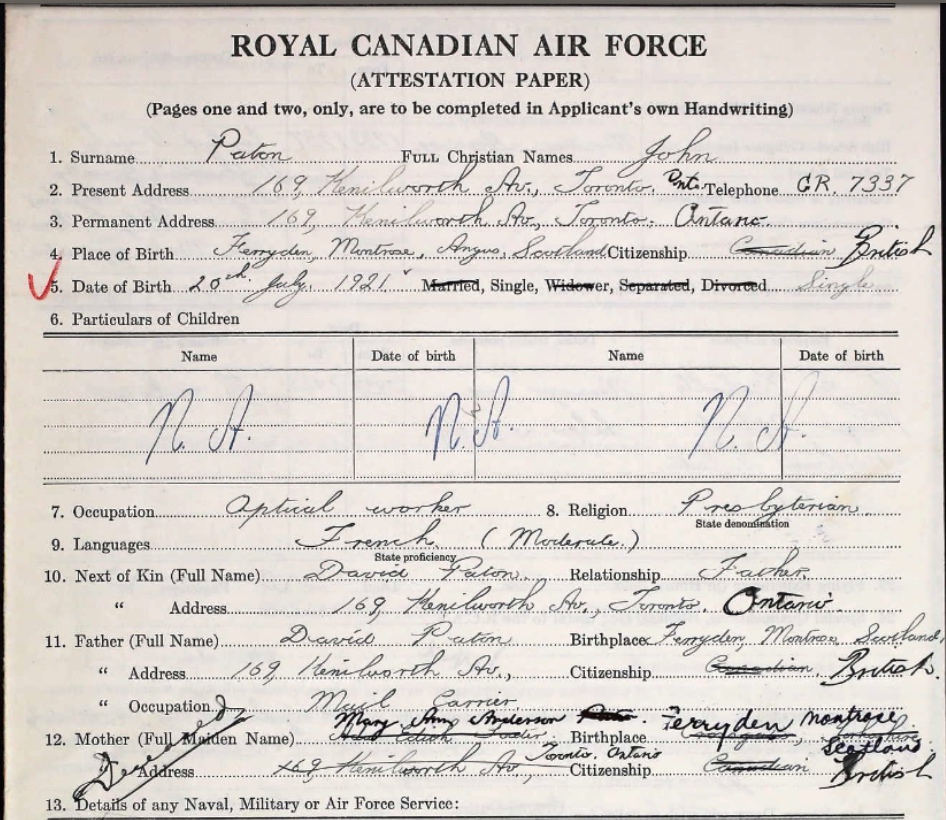 ROYAL CANADIAN AIR FORCE
(ATTESTATION PAPER)
(Pages one and two, only, are to be completed in Applicant's own Handwriting)
1. Surname Paton FULL Christian Names John
2. Present Address 169, Kenilworth Av., Toronto. Ont. Telephone GR. 7337
3. Permanent Address 169, Kenilworth Av., Toronto. Ontario
4. Place of Birth Ferryden, Montrose, Angus, Scotland Citizenship Canadian British
5. Date of Birth 20th July, 1921 Married, Single, Widower, Separated, Divorced Single
6. Particulars of Children
Name Date of birth Name Date of birth
N. A. N. A. N. A.
7. Occupation Optical worker 8. Religion Presbyterian
State denomination
9. Languages French (Moderate.)
State proficiency
10. Next of Kin (Full Name) David Paton. Relationship Father.
" Address 169, Kenilworth Av., Toronto. Ontario.
11. Father (Full Name) David Paton Birthplace Ferryden, Montrose Scotland,
" Address 169, Kenilworth Av., Citizenship Canadian British.
" Occupation Mail Carrier
Mary Ann Anderson Ferryden Montrose
12. Mother (Full Maiden Name) Birthplace Scotland
Deceased
" Address 169, Kenilworth Av., Toronto. Ontario Citizenship Canadian British
13. Details of any Naval, Military or Air Force Service: